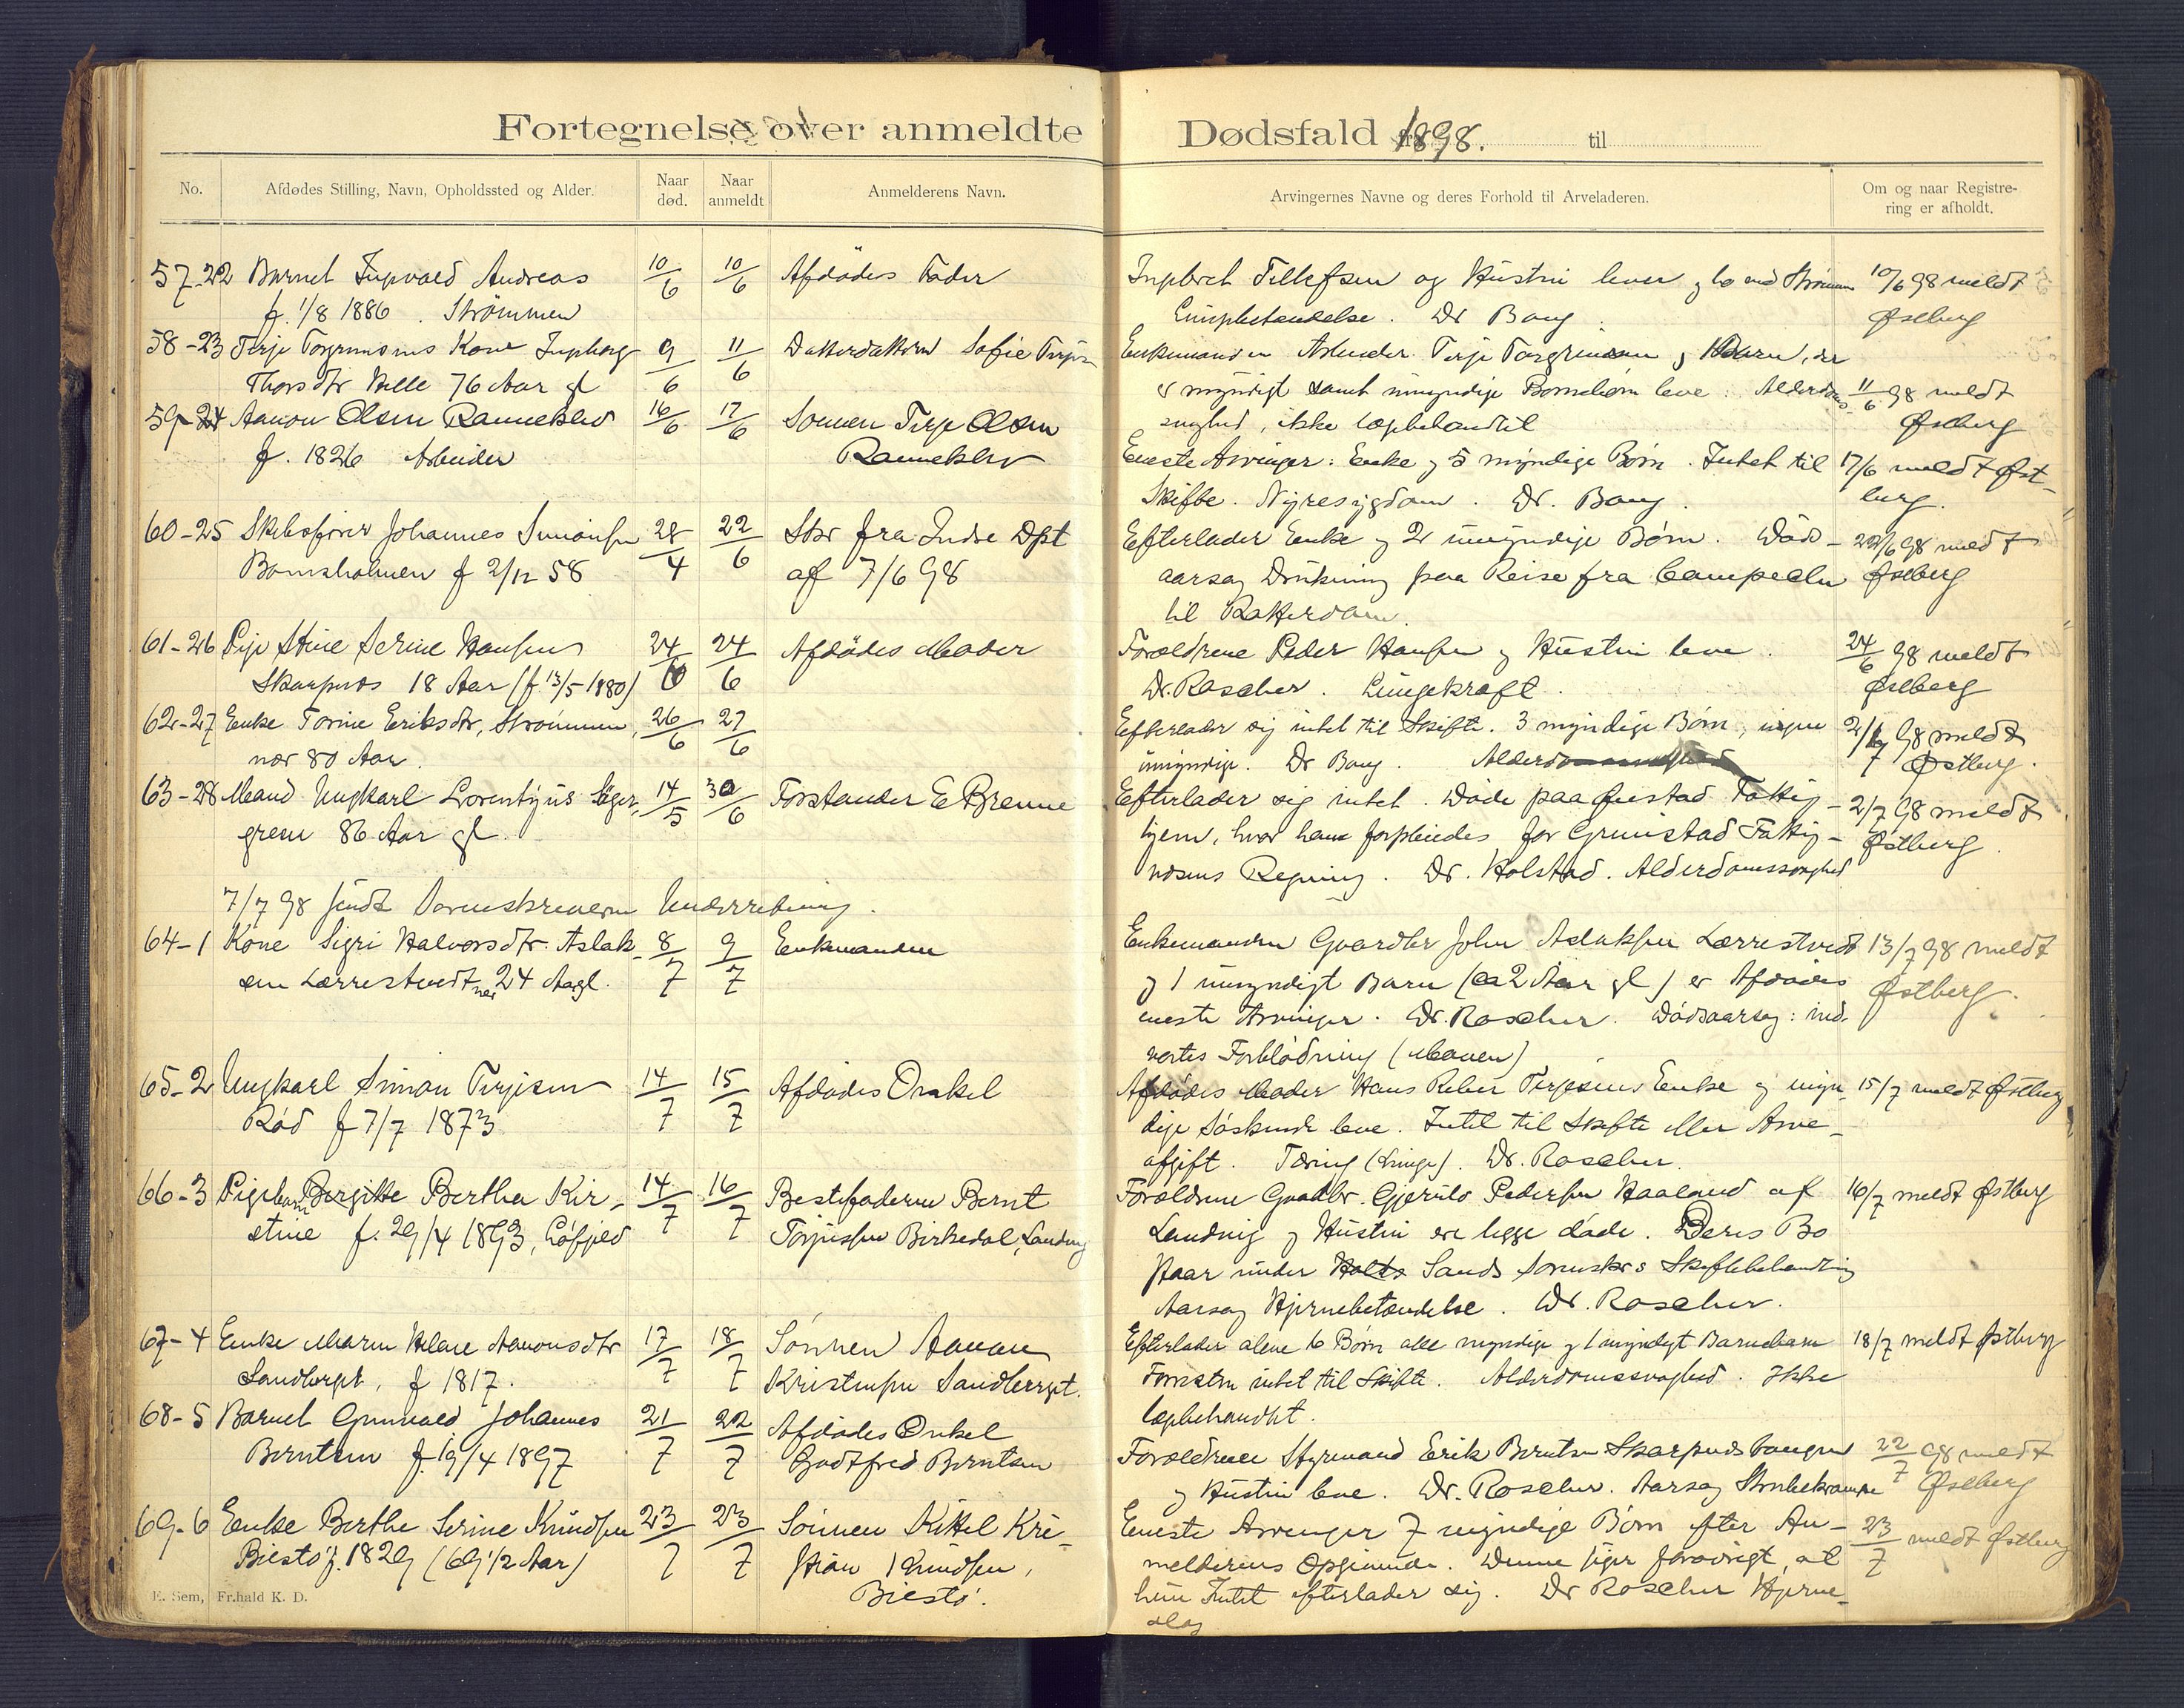 Fortegnelse over anmeldte Dødsfald 1898. til
No.
Afdødes Stilling, Navn, Opholdssted og Alder.
Naar død.
Naar anmeldt
Anmelderens Navn.
Arvingernes Navne og deres Forhold til Arveladeren.
Om og naar Registrering er afholdt.
57-22 Barnet Ingvald Andreas 10/6 10/6 Afdødes Fader
f. 1/8 1886. Strømmen
Hustru lever
10/6 98 meldt
Lungebetændelse. Dr Bang.
Østberg
58-23 Terje Torgrimsens Kone Ingeborg 9/6 11/6 Datterdatteren Sofie
Thorsdtr Helle 76 Aar gl
Enkemanden Arbeider Terje Torgrimsen og 1 Barn, der
er myndigt samt umyndige Børnebørn leve. Alderdoms-
11/6 98 meldt
svaghed, ikke lægebehandlet
Østberg
59-24 Aanon Olsen Ranneklev 16/6 17/6 Sønnen Terje Olsen
f. 1826 Arbeider
Ranneklev
Eneste Arvinger: Enke og 5 myndige Børn. Intet til
17/6 meldt Øst-
Skifte. Nyresygdom. Dr. Bang.
berg.
60-25 Skibsfører Johannes Simonsen 28/4 22/6 Skr fra Indre Dpt
Bomsholmen f 2/12 58
af 7/6 98
Efterlader Enke og 2 umyndige Børn. Døds-
22/6 98 meldt
aarsag Drukning paa Reise fra
Østberg
til Rotterdam.
61-26 Pige Stine Serine Hansen 24/6 24/6 Afdødes Moder
Skarpnes 18 Aar (f 13/5 1880)
Forældrene Peder Hansen og Hustru leve.
24/6 98 meldt
Dr. Roscher. Lungekræft.
Østberg
62-27 Enke Torine Eriksdtr, Strømmen, 26/6 27/6
nær 80 Aar.
Efterlader sig intet til Skifte. 3 myndige Børn, ingen
98 meldt
umyndige. Dr Bang.
Østberg.
63-28 Mand Ungkarl Lorentzius Seger- 14/5 30/6 Forstander E Brenne
gren 86 Aar gl.
Efterlader sig intet. Døde paa Øiestad Fattig-
2/7 98 meldt
hjem, hvor han forpleiedes for Grimstad Fattig-
Østberg.
væsens Regning. Dr. Holstad. Alderdomssvaghed
7/7 98 sendt Sorenskriveren Underretning.
64-1 Kone Sigri Halvorsdtr. Aslak- 8/7 9/7 Enkemanden
sen Lærrestvedt nær 24 Aar gl.
Enkemanden Gaardbr John Aslaksen Lærrestvedt
13/7 98 meldt
og 1 umyndigt Barn (ca 2 Aar gl) er Afdødes
Østberg.
eneste Arvinger. Dr. Roscher. Dødsaarsag: ind-
vortes Forblødning (Maven)
65-2 Ungkarl Simon Terjesen 14/7 15/7 Afdødes Onkel
Rød f 7/7 1873
Afdødes Moder Hans Terjesens Enke og myn-
15/7 meldt Østberg
dige Søskende leve. Intet til Skifte eller Arve-
afgift. Tæring (Lunge). Dr. Roscher.
66-3 Pigebarn Birgitte Berthea Kir- 14/7 16/7 Bestefaderen Bernt
stine f. 29/4 1893, Løfjeld
Torjussen Birkedal, Landvig
Forældrene Gaardbr. Gjeruld Pedersen Haaland af
16/7 meldt Østberg
Landvig og Hustru ere begge døde. Deres Bo
staar under Holts Sands Sorenskrs Skiftebehandling
Aarsag Hjernebetændelse. Dr. Roscher.
67-4 Enke Maren Helene Aanonsdtr 17/7 18/7 Sønnen Aanon
Sandberget, f 1817.
Kristensen Sandberget.
Efterlader alene 6 Børn alle myndige og 1 myndigt Barnebarn
18/7 meldt Østberg
Forresten intet til Skifte. Alderdomssvaghed. Ikke
lægebehandlet.
68-5 Barnet Gunvald Johannes 21/7 22/7 Afdødes Onkel
Berntsen f. 19/4 1897
Godtfred Berntsen
Forældrene Styrmand Erik Berntsen Skarpnes
22/7 98 meldt
og Hustru leve. Dr. Roscher. Aarsag Strubekrampe
Østberg
69-6 Enke Berthe Serine Knudsen 23/7 23/7 Sønnen Kittel Kri-
Biestø f. 1829 (69 1/2 Aar)
stian Knudsen,
Biestø.
Eneste Arvinger 7 myndige Børn efter An-
23/7 meldt Østberg
melderens Opgivende. Denne siger forøvrigt, at
hun Intet efterlader sig. Dr Roscher Hjerne-
slag
E. Sem, Fr.hald K. D.